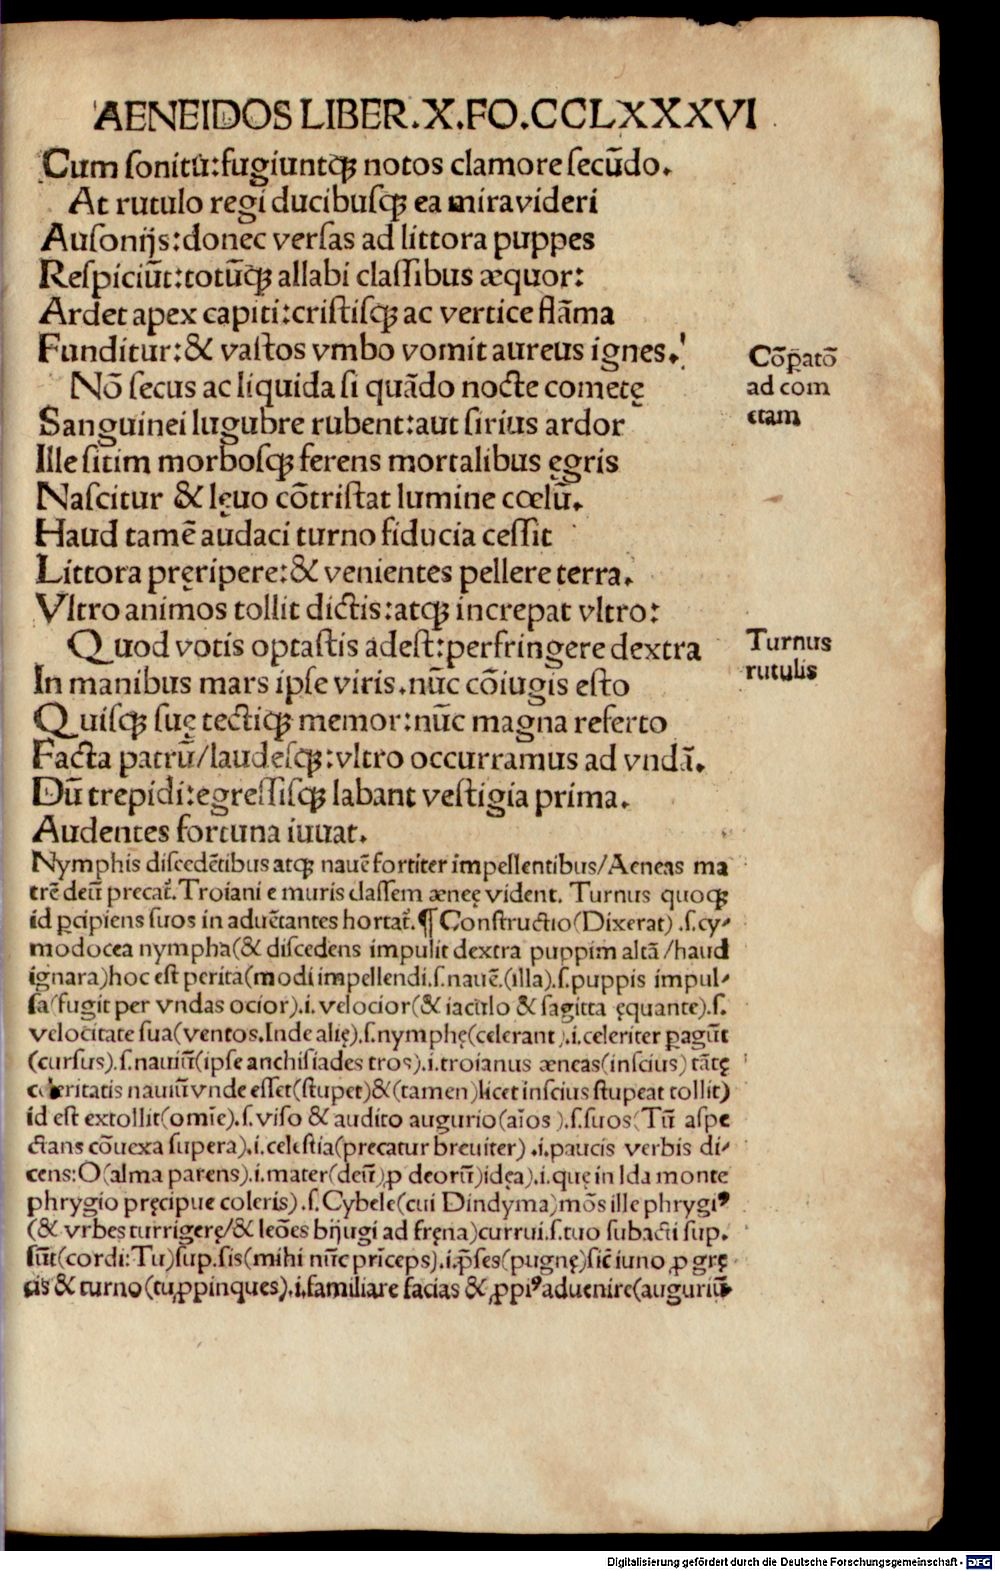 AENEIDOS LIBER.X.FO.CCLXXXVI
Cum sonitu:fugiuntqꝫ notos clamore secūdo.
At rutulo regi ducibusqꝫ ea miravideri
Ausonijs:donec versas ad littora puppes
Respiciūt:totūqꝫ allabi classibus æquor:
Ardet apex capiti:cristisqꝫ ac vertice flāma
Funditur:& vastos vmbo vomit aureus ignes.
Nō secus ac liquida si quādo nocte cometę
Sanguinei lugubre rubent:aut sirius ardor
Ille sitim morbosqꝫ ferens mortalibus ęgris
Nascitur & lęuo cōtristat lumine cœlū.
Haud tamē audaci turno fiducia cessit
Littora pręripere:& venientes pellere terra.
Vltro animos tollit dictis:atqꝫ increpat vltro:
Quod votis optastis adest:perfringere dextra
In manibus mars ipse viris.nūc cōiugis esto
Quisqꝫ suę tectiqꝫ memor:nūc magna referto
Facta patrū/laudesqꝫ:vltro occurramus ad vndā.
Dū trepidi:egressisqꝫ labant vestigia prima.
Audentes fortuna iuuat.
Cōꝑatō
ad com
etam
Turnus
rutulis
Nymphis discedētibus atqꝫ nauē fortiter impellentibus/Aeneas ma
trē deū precat̄.Troiani e muris classem æneę vident. Turnus quoqꝫ
id ꝑcipiens suos in aduētantes hortat̄.¶ Constructio(Dixerat).s.cy-
modocea nympha(& discedens impulit dextra puppim altā/haud
ignara)hoc est perita(modi impellendi.s.nauē.(illa).s.puppis impul-
sa(fugit per vndas ocior).i.velocior(& iaculo & sagitta ęquante).s.
velocitate sua(ventos.Inde alię).s.nymphę(celerant).i.celeriter ꝑagūt
(cursus).s.nauiū(ipse anchisiades tros).i.troianus æneas(inscius)tātę
celeritatis nauiū vnde esset(stupet)&(tamen)licet inscius stupeat tollit)
id est extollit(omīe).s.viso & audito augurio(aīos).s.suos(Tū aspe
ctans cōuexa supera).i.celestia(precatur breuiter).i.paucis verbis di-
cens:O(alma parens).i.mater(deū)ꝓ deorū)idęa).i.quę in Ida monte
phrygio pręcipue coleris).s.Cybele(cui Dindyma)mōs ille phrygiꝰ
(& vrbes turrigerę/& leōes bijugi ad fręna)currui.s.tuo subacti sup.
sūt(cordi:Tu)sup.sis(mihi nūc prīceps).i.p̄ses(pugnę)sic̄ iuno ꝓ grę
cis & turno(tu,ꝓpinques).i.familiare facias & ꝓpiꝰ aduenire(auguriū
Digitalisierung gefördert durch die Deutsche Forschungsgemeinschaft - DFG